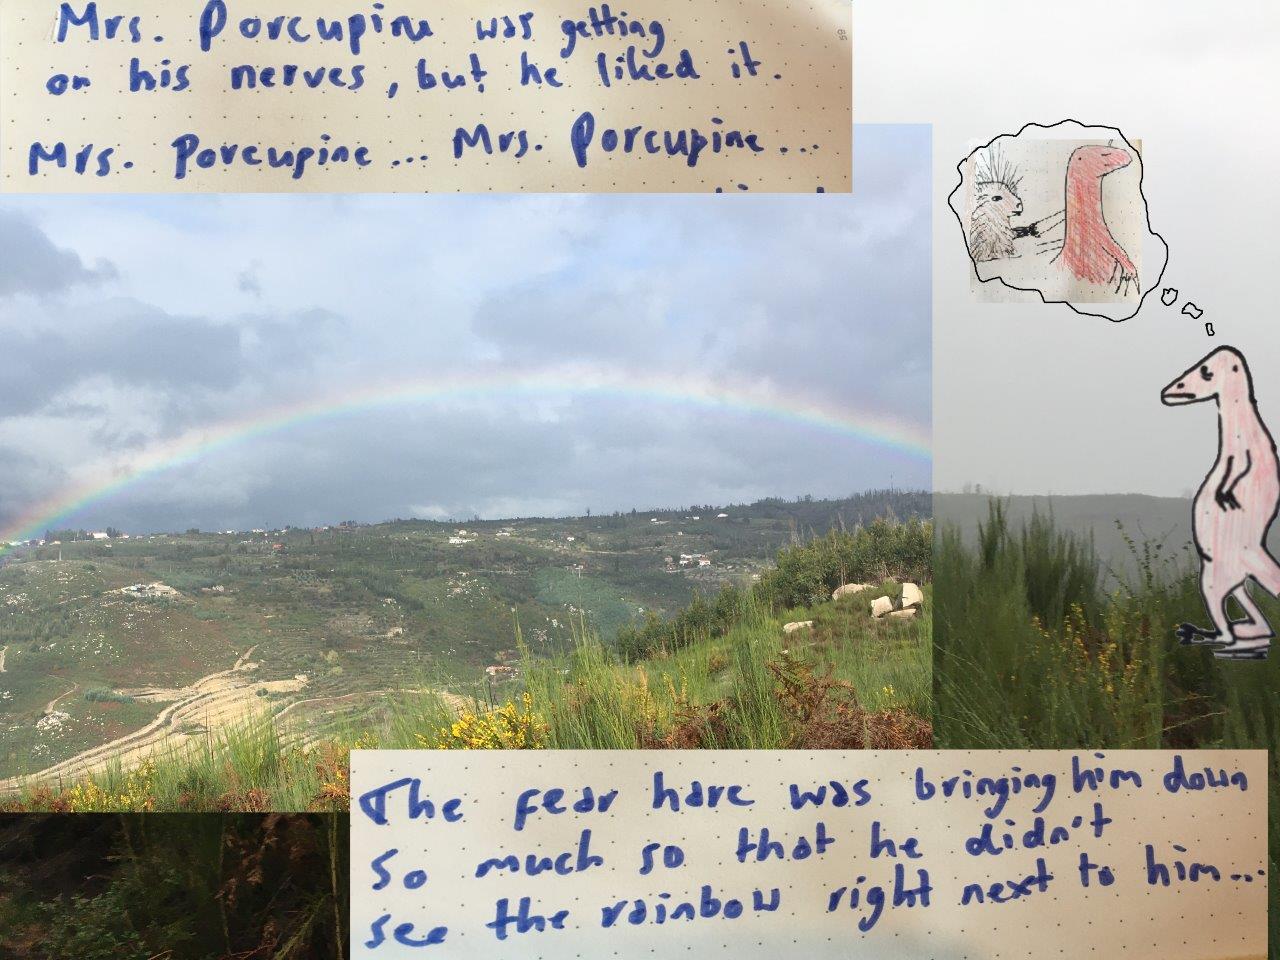 Mrs. Porcupine was getting
on his nerves, but he liked it.
Mrs. Porcupine... Mrs. Porcupine...
The fear hare was bringing him down
so much so that he didn't
see the rainbow right next to him...